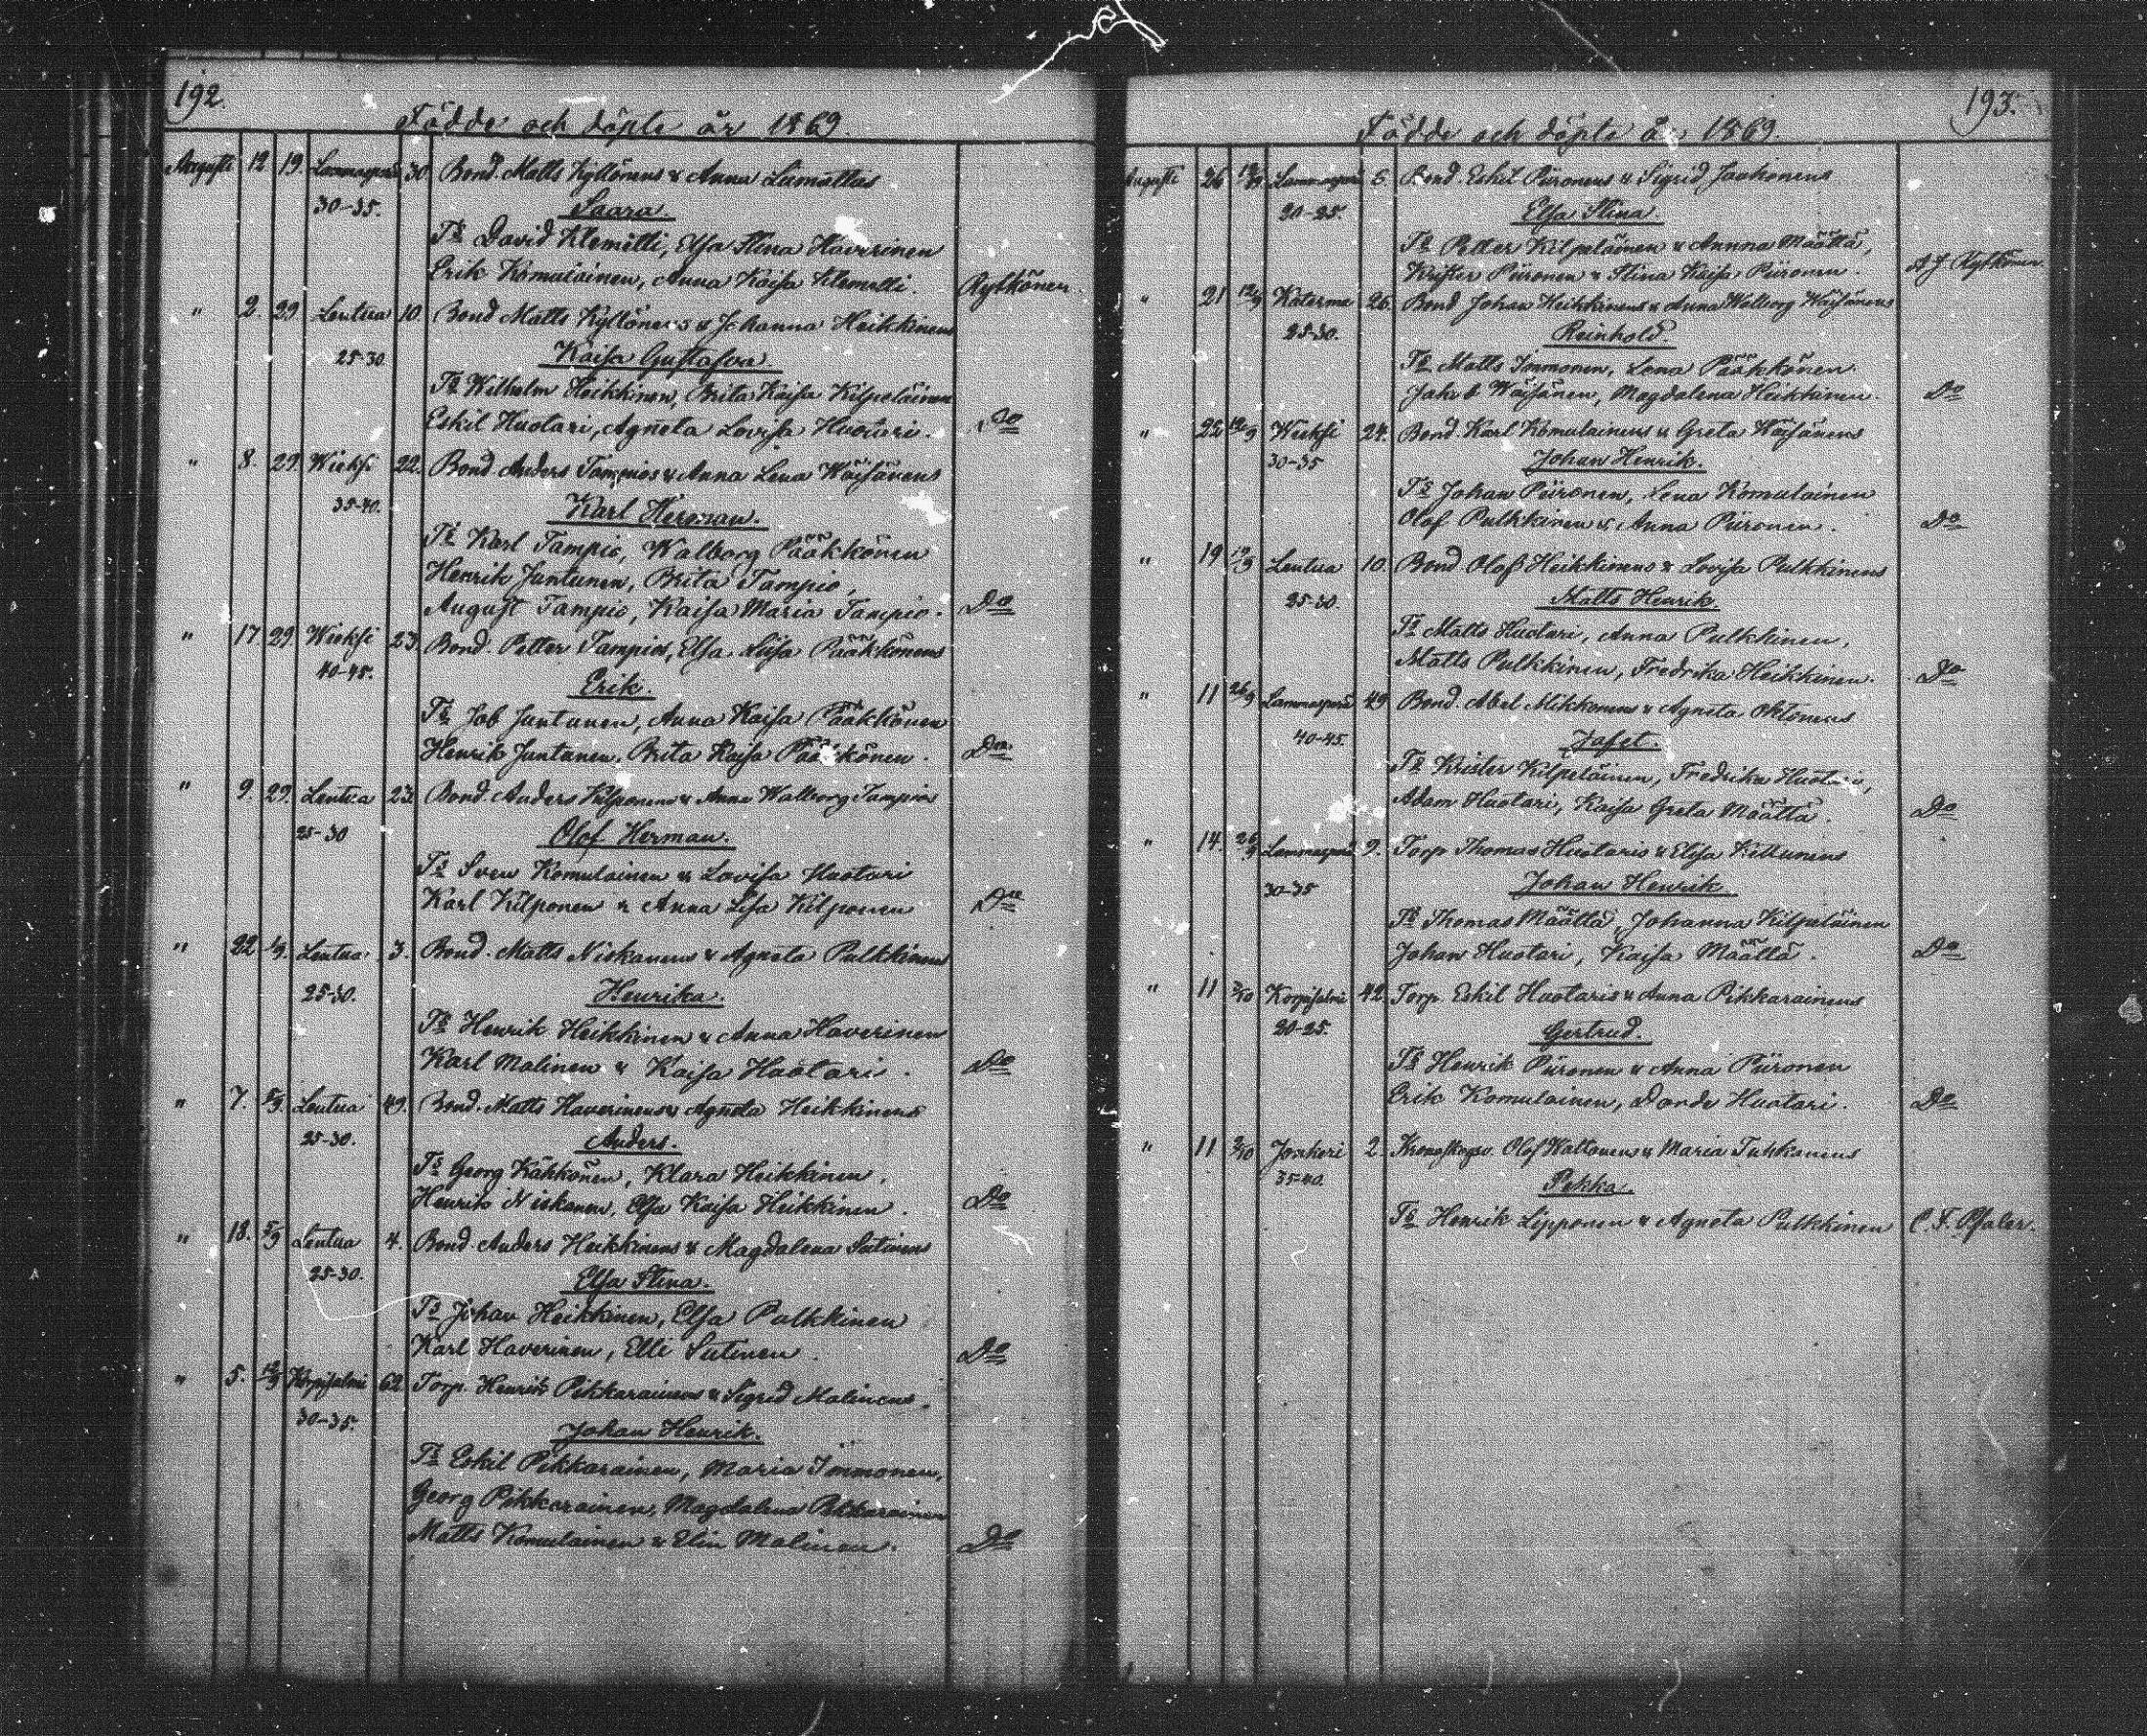 192.
Födde och döpte år 1869.
Augusti 12. 19. Lammasperä 30. Bond. Matts Kyllönens & Anna Liimattas
30-35. Saara
Ts David Klemetti, Elsa Stina Haverinen
Erik Komulainen, Anna Kaisa Klemetti. Rytkönen.
" 2. 29 Lentua 10. Bond Matts Kyllönens & Johanna Heikkinens
25-30 Kaisa Gustafva.
Ts Wilhelm Heikkinen, Brita Kaisa Kilpeläinen
Eskil Huotari, Agneta Lovisa Huotari. Do
" 8. 29. Wieksi 22. Bond. Anders Tampios & Anna Lena Wäisänens
35-40. Karl Herman.
Ts Karl Tampio, Walborg Pääkkönen
Henrik Juntunen, Brita Tampio,
August Tampio, Kaisa Maria Tampio. Do
" 17. 29. Wieksi 23. Bond. Petter Tampios, Elsa Liisa Pääkkönens
40-45. Erik.
Ts Job Juntunen, Anna Kaisa Pääkkönen
Henrik Juntunen, Brita Kaisa Pääkkönen. Do
" 9. 29. Lentua 23. Bond. Anders Kilponens & Anna Walborg Tampios
25-30 Olof Herman.
Ts Sven Komulainen & Lovisa Huotari
Karl Kilponen & Anna Lisa Kilponen Do
" 22 /9. Lentua 3. Bond. Matts Niskanens & Agneta Pulkkinens
25-30. Henrika.
Ts Henrik Heikkinen & Anna Haverinen
Karl Malinen & Kaisa Huotari. Do
" 7. 5/9. Lentua 49. Bond. Matts Haverinens & Agneta Heikkinens
25-30. Anders.
Ts Georg Kähkönen, Klara Heikkinen,
Henrik Niskanen, Elsa Kaisa Heikkinen. Do
" 18. 5/9 Lentua 4. Bond. Anders Heikkinens & Magdalena Sutinens
25-30. Elsa Stina.
Ts Johan Heikkinen, Elsa Pulkkinen
Karl Haverinen, Elli Sutinen. Do
" 5. 12/9 Korpisalmi 62 Torp. Henrik Pikkarainens & Sigrid Malinens.
30-35. Johan Henrik.
Ts Eskil Pikkarainen, Maria Immonen,
Georg Pikkarainen, Magdalena Pikkarainen
Matts Komulainen & Elin Malinen. Do
193.
Födde och döpte år 1869.
Augusti 26 12/9 Lammasperä 6. Bond. Eskil Piironens & Sigrid Jaakonens
20-25. Elsa Stina.
Ts Petter Kilpeläinen & Annna Määttä,
Krister Piironen & Stina Kaisa Piironen. A J Rytkönen
" 21 12/9 Katerma 26. Bond Johan Heikkinens & Anna Walborg Wäisänens
25-30. Reinhold.
Ts Matts Immonen, Lena Pääkkönen.
Jakob Wäisänen, Magdalena Heikkinen. Do
" 22 12/9 Wieksi 24. Bond. Karl Komulainens & Greta Wäisänens
30-35 Johan Henrik.
Ts Johan Piironen, Lena Komulainen
Olof Pulkkinen & Anna Piironen. Do
" 19 19/9 Lentua 10. Bond. Olofs Heikkinens & Lovisa Pulkkinens
25-30. Matts Henrik.
Ts Matts Huotari, Anna Pulkkinen,
Matts Pulkkinen, Fredrika Heikkinen. Do
" 11 26/9 Lammasperä 49 Bond. Abel Mikkonens & Agneta Oktonens
40-45. Jafet.
Ts Krister Kilpeläinen, Fredrika Huotari,
Adam Huotari, Kaisa Greta Määttä. Do
" 14. 26/9 Lammasperä 9. Torp Thomas Huotaris & Elisa Kettunens
30-35 Johan Henrik
Ts Thomas Määttä, Johanna Kilpeläinen
Johan Huotari, Kaisa Määttä. Do
" 11 3/10 Korpisalmi 42. Torp. Eskil Huotaris & Anna Pikkarainens
20-25. Gertrud.
Ts Henrik Piironen & Anna Piironen
Erik Komulainen, Dorde Huotari. Do
" 11 2/10 Jonkeri 2. Kronoskogsv. Olof Waltonens & Maria Tuhkanens
35-40. Pekka.
Ts Henrik Lipponen & Agneta Pulkkinen C. F. Pfaler.